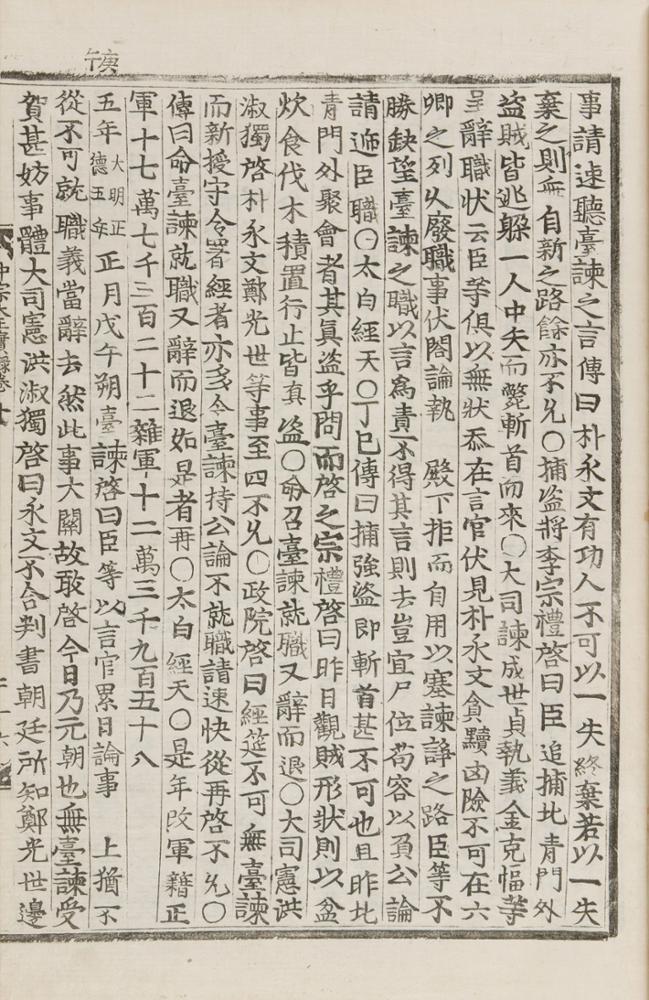 庚午
事請速聽臺諫之言傳曰朴永文有功人不可以一失終棄若以一失
棄之則無自新之路餘亦不允○捕盜將李宗禮啓曰臣追捕北青門外
盜賊皆逃躱一人中矢而斃斬首而來○大司諫成世貞執義金克愊等
呈辭職狀云臣等俱以無狀忝在言官伏見朴永文貪黷凶險不可在六
卿之列久廢職事伏閤論執 殿下拒而自用以塞諫諍之路臣等不
勝缺望臺諫之職以言爲責不得其言則去豈宜尸位苟容以負公論
請遞臣職○太白經天○丁巳傳曰捕強盜卽斬首甚不可也且昨北
青門外聚會者其眞盜乎問而啓之宗禮啓曰昨日觀賊形狀則以盆
炊食伐木積置行止皆眞盜○命召臺諫就職又辭而退○大司憲洪
淑獨啓朴永文鄭光世等事至四不允○政院啓曰經筵不可無臺諫
而新授守令署經者亦多令臺諫持公論不就職請速快從再啓不允○
傳曰命臺諫就職又辭而退如是者再○太白經天○是年改軍籍正
軍十七萬七千三百二十二雜軍十二萬三千九百五十八
五年大明正德五年正月戊午朔臺諫啓曰臣等以言官累日論事 上猶不
從不可就職義當辭去然此事大關故敢啓今日乃元朝也無臺諫受
賀甚妨事體大司憲洪淑獨啓曰永文不合判書朝廷所知鄭光世邊